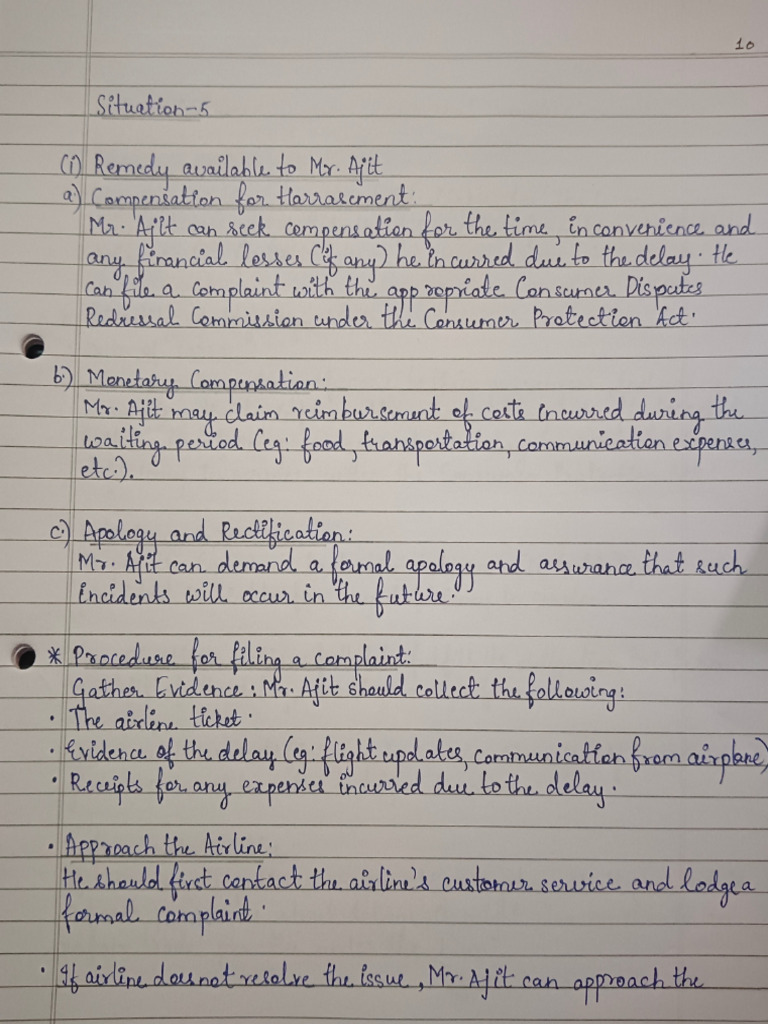 10
Situation-5
(i) Remedy available to Mr. Ajit
a) Compensation for Harrasement:
Mr. Ajit can seek compensation for the time, inconvenience and
any financial losses (if any) he incurred due to the delay. He
can file a complaint with the appropriate Consumer Disputes
Redressal Commission under the Consumer Protection Act.
b.) Monetary Compensation:
Mr. Ajit may claim reimbursement of costs incurred during the
waiting period (eg: food, transportation, communication expenses,
etc.).
c.) Apology and Rectification:
Mr. Ajit can demand a formal apology and assurance that such
incidents will occur in the future.
* Procedure for filing a complaint:
Gather Evidence: Mr. Ajit should collect the following:
• The airline ticket.
• Evidence of the delay (eg: flight updates, communication from airplane)
• Receipts for any expenses incurred due to the delay.
• Approach the Airline:
He should first contact the airline's customer service and lodge a
formal complaint.
• If airline does not resolve the issue, Mr. Ajit can approach the